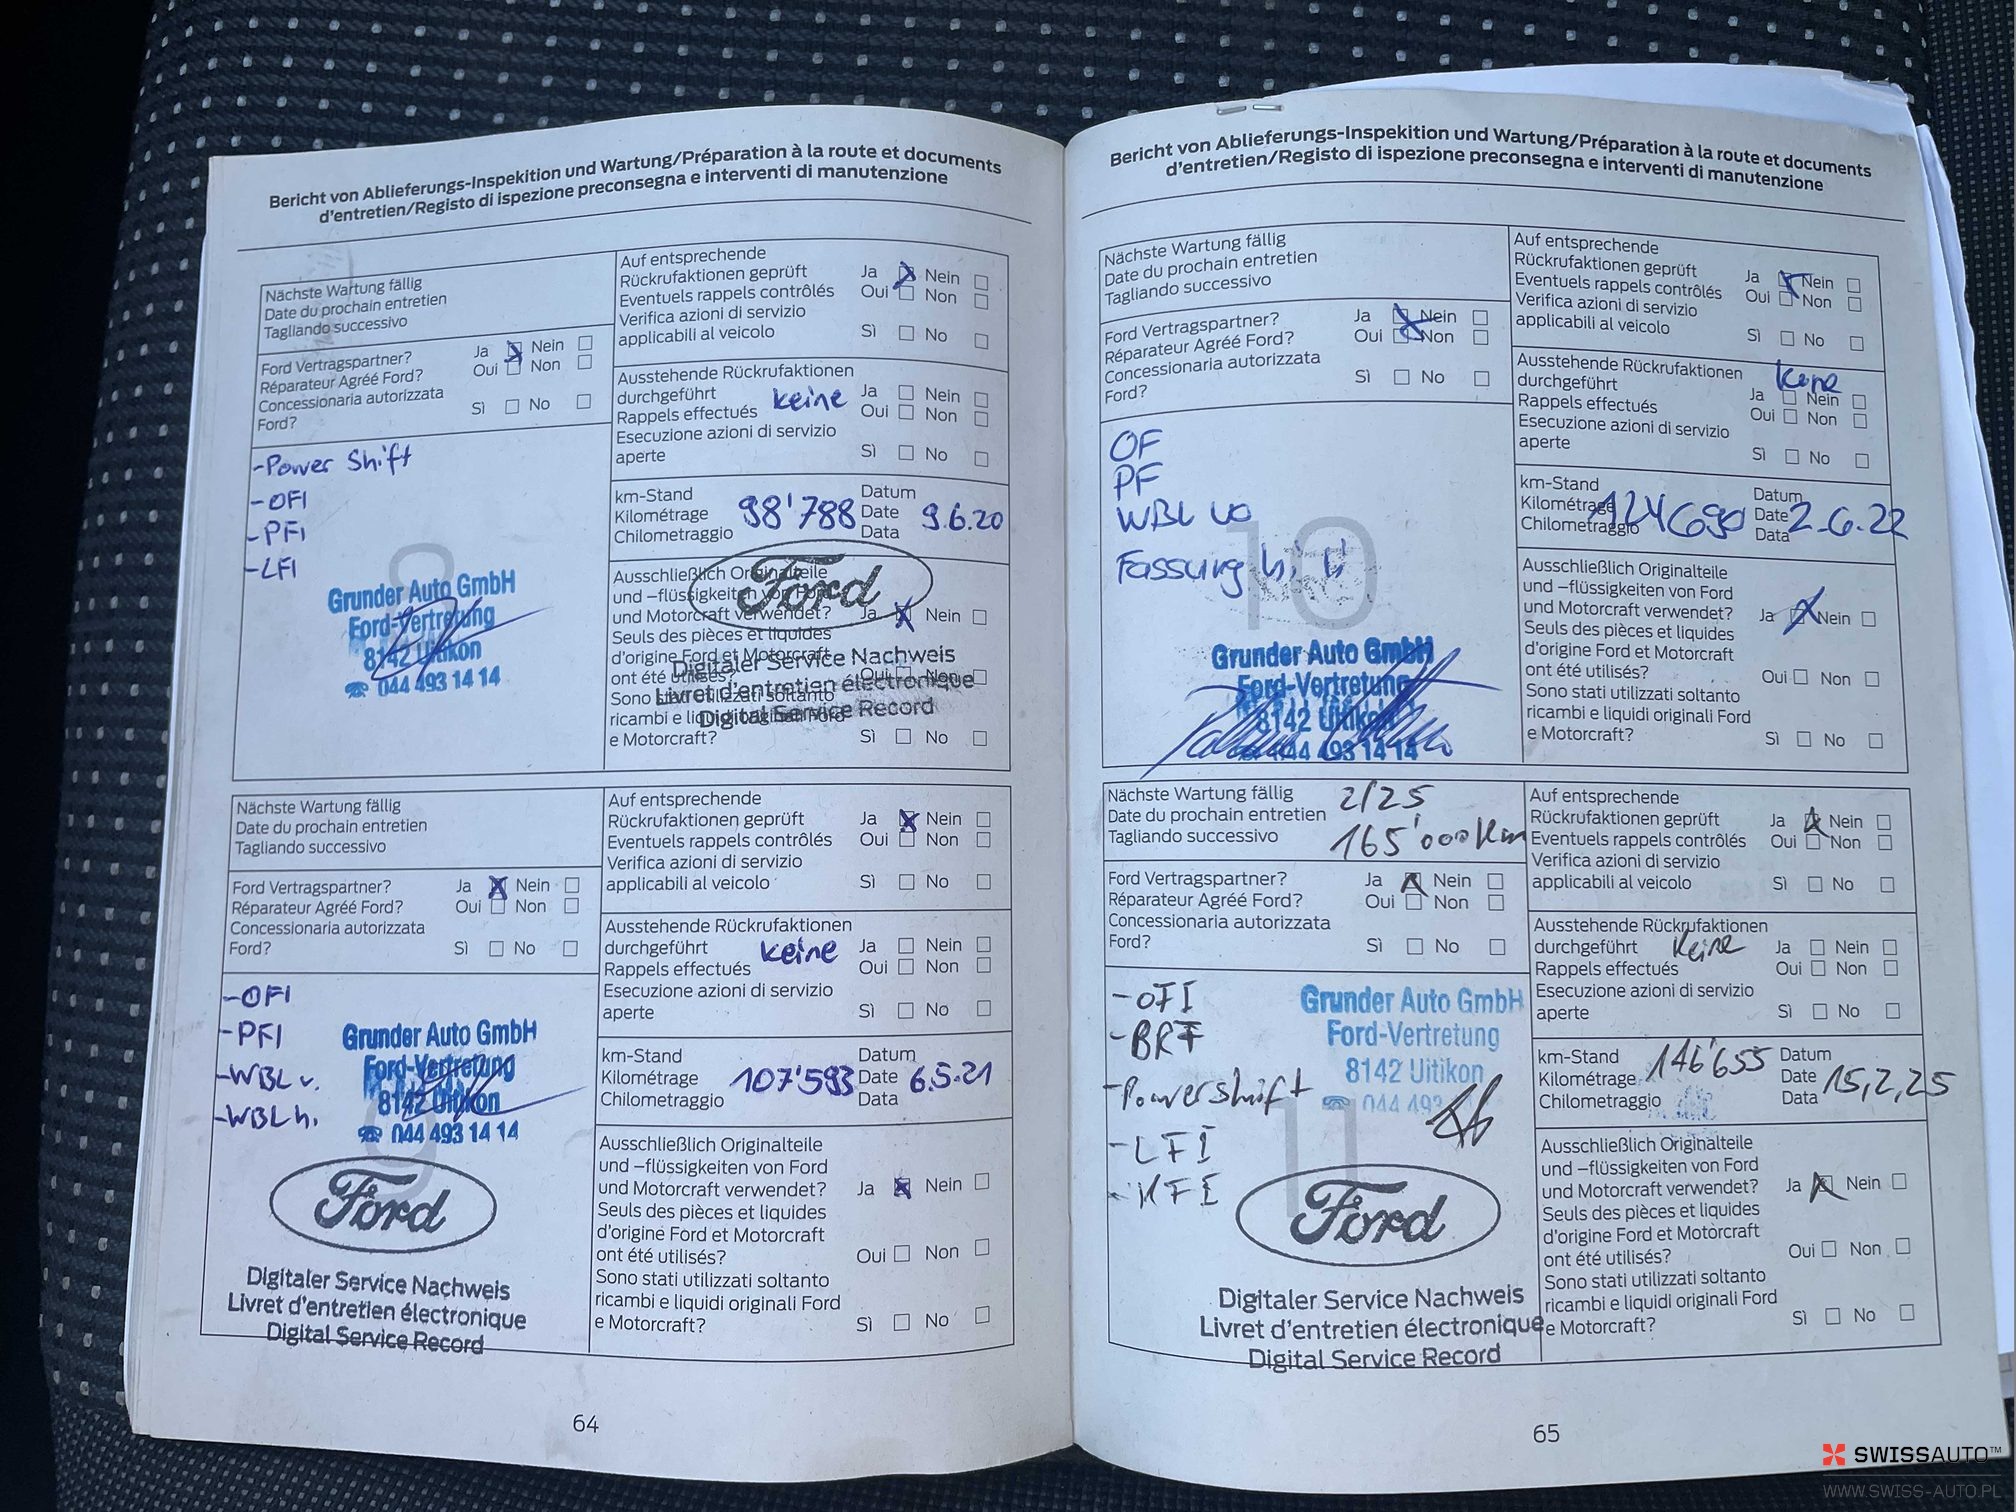 Bericht von Ablieferungs-Inspekition und Wartung/Préparation à la route et documents
d'entretien/Registo di ispezione preconsegna e interventi di manutenzione
Nächste Wartung fällig
Date du prochain entretien
Tagliando successivo
Ford Vertragspartner?
Réparateur Agréé Ford?
Concessionaria autorizzata
Ford?
Ja Nein
Oui Non
Sì No
-Power Shift
-OFI
-PFI
-LFI
Grunder Auto GmbH
Ford-Vertretung
8142 Uitikon
☎ 044 493 14 14
Auf entsprechende
Rückrufaktionen geprüft
Eventuels rappels contrôlés
Verifica azioni di servizio
applicabili al veicolo
Ja Nein
Oui Non
Sì No
Ausstehende Rückrufaktionen
durchgeführt keine
Rappels effectués
Esecuzione azioni di servizio
aperte
Ja Nein
Oui Non
Sì No
km-Stand
Kilométrage 98'788
Chilometraggio
Datum
Date 9.6.20
Data
Ausschließlich Originalteile
und –flüssigkeiten von Ford
und Motorcraft verwendet? Ja Nein
Seuls des pièces et liquides
d'origine Ford et Motorcraft
ont été utilisés? Oui Non
Sono stati utilizzati soltanto
ricambi e liquidi originali Ford
e Motorcraft? Sì No
Ford
Digitaler Service Nachweis
Livret d'entretien électronique
Digital Service Record
Nächste Wartung fällig
Date du prochain entretien
Tagliando successivo
Ford Vertragspartner?
Réparateur Agréé Ford?
Concessionaria autorizzata
Ford?
Ja Nein
Oui Non
Sì No
-OFI
-PFI
-WBL v.
-WBL h.
9
Grunder Auto GmbH
Ford-Vertretung
8142 Uitikon
☎ 044 493 14 14
Ford
Digitaler Service Nachweis
Livret d'entretien électronique
Digital Service Record
Auf entsprechende
Rückrufaktionen geprüft
Eventuels rappels contrôlés
Verifica azioni di servizio
applicabili al veicolo
Ja Nein
Oui Non
Sì No
Ausstehende Rückrufaktionen
durchgeführt keine
Rappels effectués
Esecuzione azioni di servizio
aperte
Ja Nein
Oui Non
Sì No
km-Stand
Kilométrage 107'593
Chilometraggio
Datum
Date 6.5.21
Data
Ausschließlich Originalteile
und –flüssigkeiten von Ford
und Motorcraft verwendet? Ja Nein
Seuls des pièces et liquides
d'origine Ford et Motorcraft
ont été utilisés? Oui Non
Sono stati utilizzati soltanto
ricambi e liquidi originali Ford
e Motorcraft? Sì No
64
Bericht von Ablieferungs-Inspekition und Wartung/Préparation à la route et documents
d'entretien/Registo di ispezione preconsegna e interventi di manutenzione
Nächste Wartung fällig
Date du prochain entretien
Tagliando successivo
Ford Vertragspartner?
Réparateur Agréé Ford?
Concessionaria autorizzata
Ford?
Ja Nein
Oui Non
Sì No
OF
PF
WBL
Fassung
10
Grunder Auto GmbH
Ford-Vertretung
8142 Uitikon
☎ 044 493 14 14
Auf entsprechende
Rückrufaktionen geprüft
Eventuels rappels contrôlés
Verifica azioni di servizio
applicabili al veicolo
Ja Nein
Oui Non
Sì No
Ausstehende Rückrufaktionen
durchgeführt keine
Rappels effectués
Esecuzione azioni di servizio
aperte
Ja Nein
Oui Non
Sì No
km-Stand
Kilométrage 124690
Chilometraggio
Datum
Date 2.6.22
Data
Ausschließlich Originalteile
und –flüssigkeiten von Ford
und Motorcraft verwendet? Ja Nein
Seuls des pièces et liquides
d'origine Ford et Motorcraft
ont été utilisés? Oui Non
Sono stati utilizzati soltanto
ricambi e liquidi originali Ford
e Motorcraft? Sì No
Nächste Wartung fällig 2/25
Date du prochain entretien
Tagliando successivo 165'000 Km
Ford Vertragspartner?
Réparateur Agréé Ford?
Concessionaria autorizzata
Ford?
Ja Nein
Oui Non
Sì No
-OFI
-BRF
-Powershift
-LFI
-KFI
11
Grunder Auto GmbH
Ford-Vertretung
8142 Uitikon
☎ 044 493
Ford
Digitaler Service Nachweis
Livret d'entretien électronique
Digital Service Record
Auf entsprechende
Rückrufaktionen geprüft
Eventuels rappels contrôlés
Verifica azioni di servizio
applicabili al veicolo
Ja Nein
Oui Non
Sì No
Ausstehende Rückrufaktionen
durchgeführt keine
Rappels effectués
Esecuzione azioni di servizio
aperte
Ja Nein
Oui Non
Sì No
km-Stand
Kilométrage 146'655
Chilometraggio
Datum
Date 15,2,25
Data
Ausschließlich Originalteile
und –flüssigkeiten von Ford
und Motorcraft verwendet? Ja Nein
Seuls des pièces et liquides
d'origine Ford et Motorcraft
ont été utilisés? Oui Non
Sono stati utilizzati soltanto
ricambi e liquidi originali Ford
e Motorcraft? Sì No
65
SWISSAUTO™
WWW.SWISS-AUTO.PL